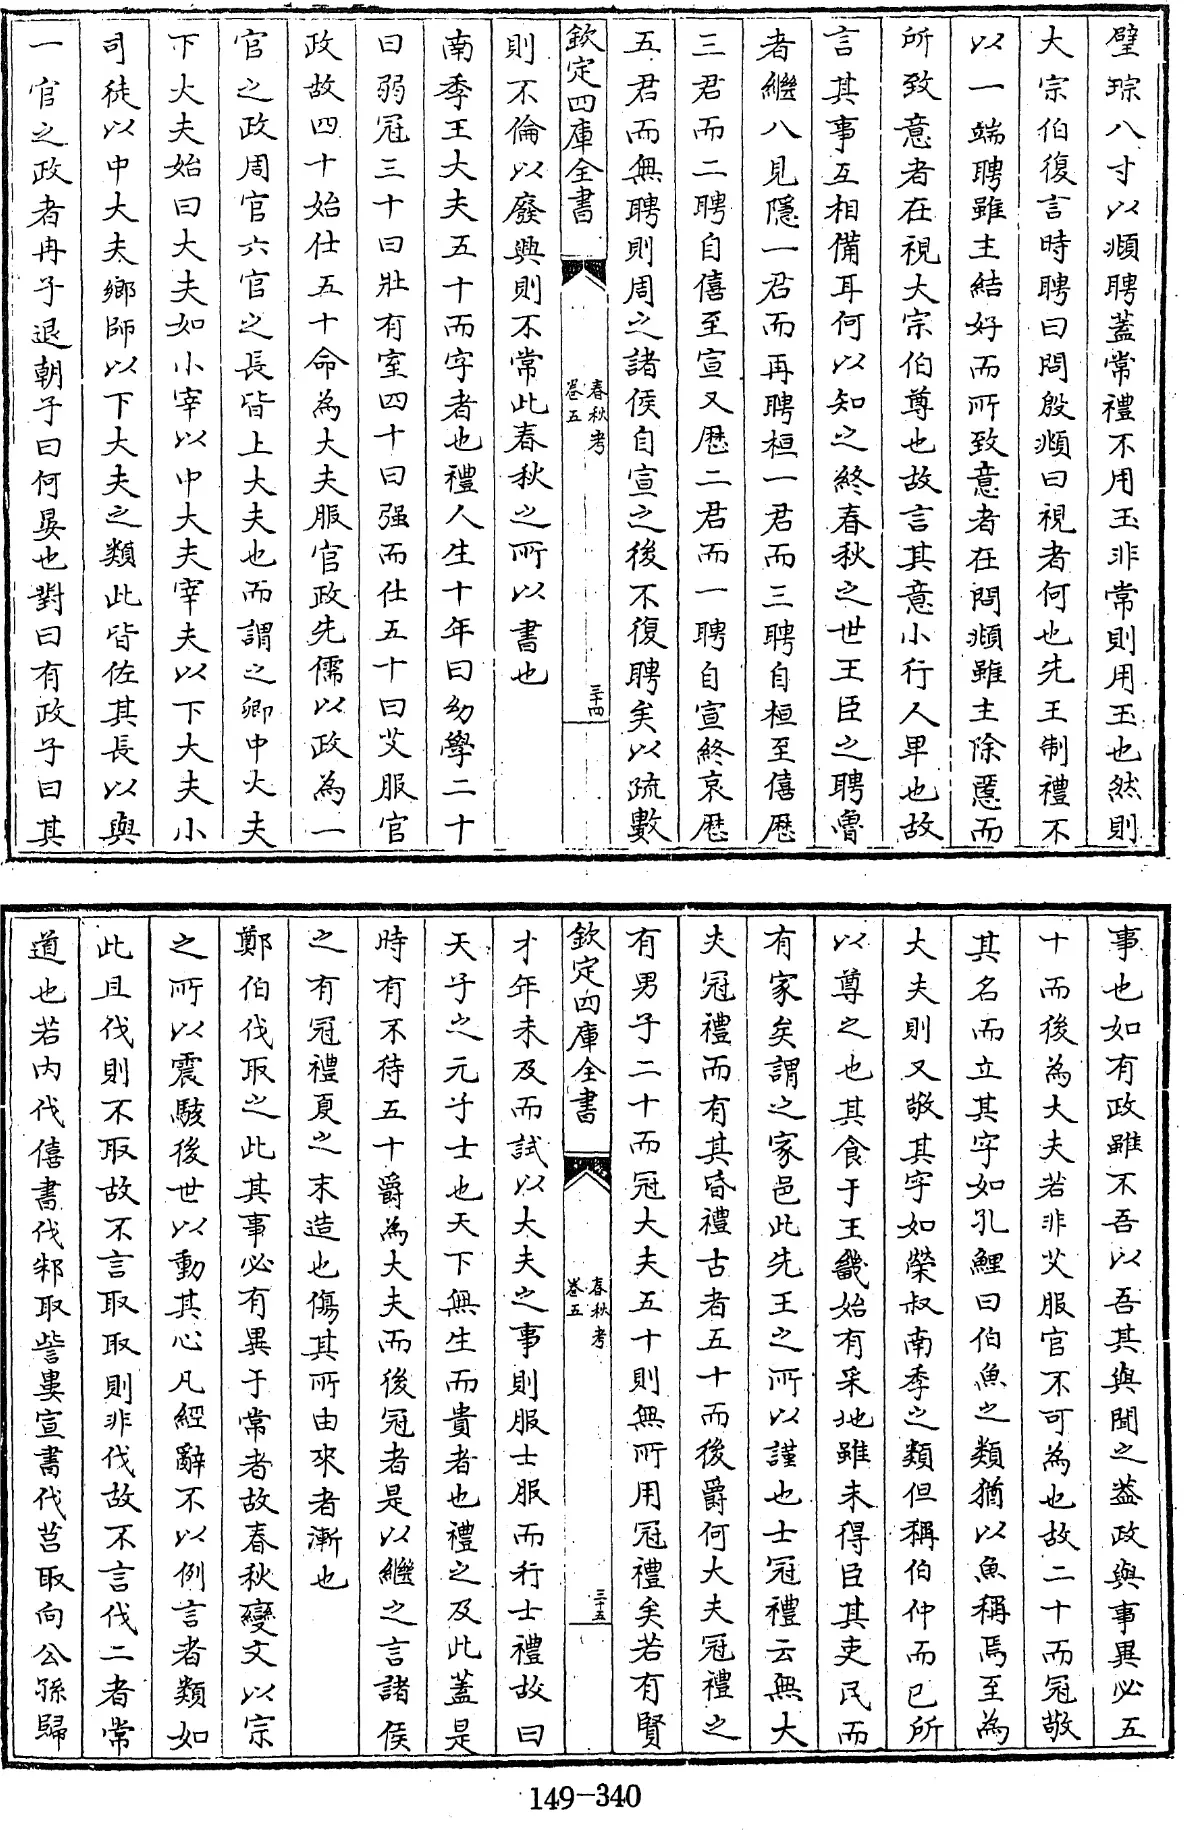 璧琮八寸以頫聘蓋常禮不用玉非常則用玉也然則
大宗伯復言時聘曰問殷頫曰視者何也先王制禮不
以一端聘雖主結好而所致意者在問頫雖主除慝而
所致意者在視大宗伯尊也故言其意小行人卑也故
言其事互相備耳何以知之終春秋之世王臣之聘魯
者繼八見隱一君而再聘桓一君而三聘自桓至僖歴
三君而二聘自僖至宣又歴二君而一聘自宣終哀歴
五君而無聘則周之諸侯自宣之後不復聘矣以疏數
欽定四庫全書
春秋考
卷五
三十四
則不倫以廢興則不常此春秋之所以書也
南季王大夫五十而字者也禮人生十年曰幼學二十
曰弱冠三十曰壯有室四十曰强而仕五十曰艾服官
政故四十始仕五十命為大夫服官政先儒以政為一
官之政周官六官之長皆上大夫也而謂之卿中大夫
下大夫始曰大夫如小宰以中大夫宰夫以下大夫小
司徒以中大夫鄉師以下大夫之類此皆佐其長以與
一官之政者冉子退朝子曰何晏也對曰有政子曰其
事也如有政雖不吾以吾其與聞之蓋政與事異必五
十而後為大夫若非艾服官不可為也故二十而冠敬
其名而立其字如孔鯉曰伯魚之類猶以魚稱焉至為
大夫則又敬其字如榮叔南季之類但稱伯仲而已所
以尊之也其食于王畿始有采地雖未得臣其吏民而
有家矣謂之家邑此先王之所以謹也士冠禮云無大
夫冠禮而有其昏禮古者五十而後爵何大夫冠禮之
有男子二十而冠大夫五十則無所用冠禮矣若有賢
欽定四庫全書
春秋考
卷五
三十五
才年未及而試以大夫之事則服士服而行士禮故曰
天子之元子士也天下無生而貴者也禮之及此蓋是
時有不待五十爵為大夫而後冠者是以繼之言諸侯
之有冠禮夏之末造也傷其所由來者漸也
鄭伯伐取之此其事必有異于常者故春秋變文以宗
之所以震駭後世以動其心凡經辭不以例言者類如
此且伐則不取故不言取取則非伐故不言伐二者常
道也若内伐僖書伐邾取訾婁宣書伐莒取向公孫歸
149-340